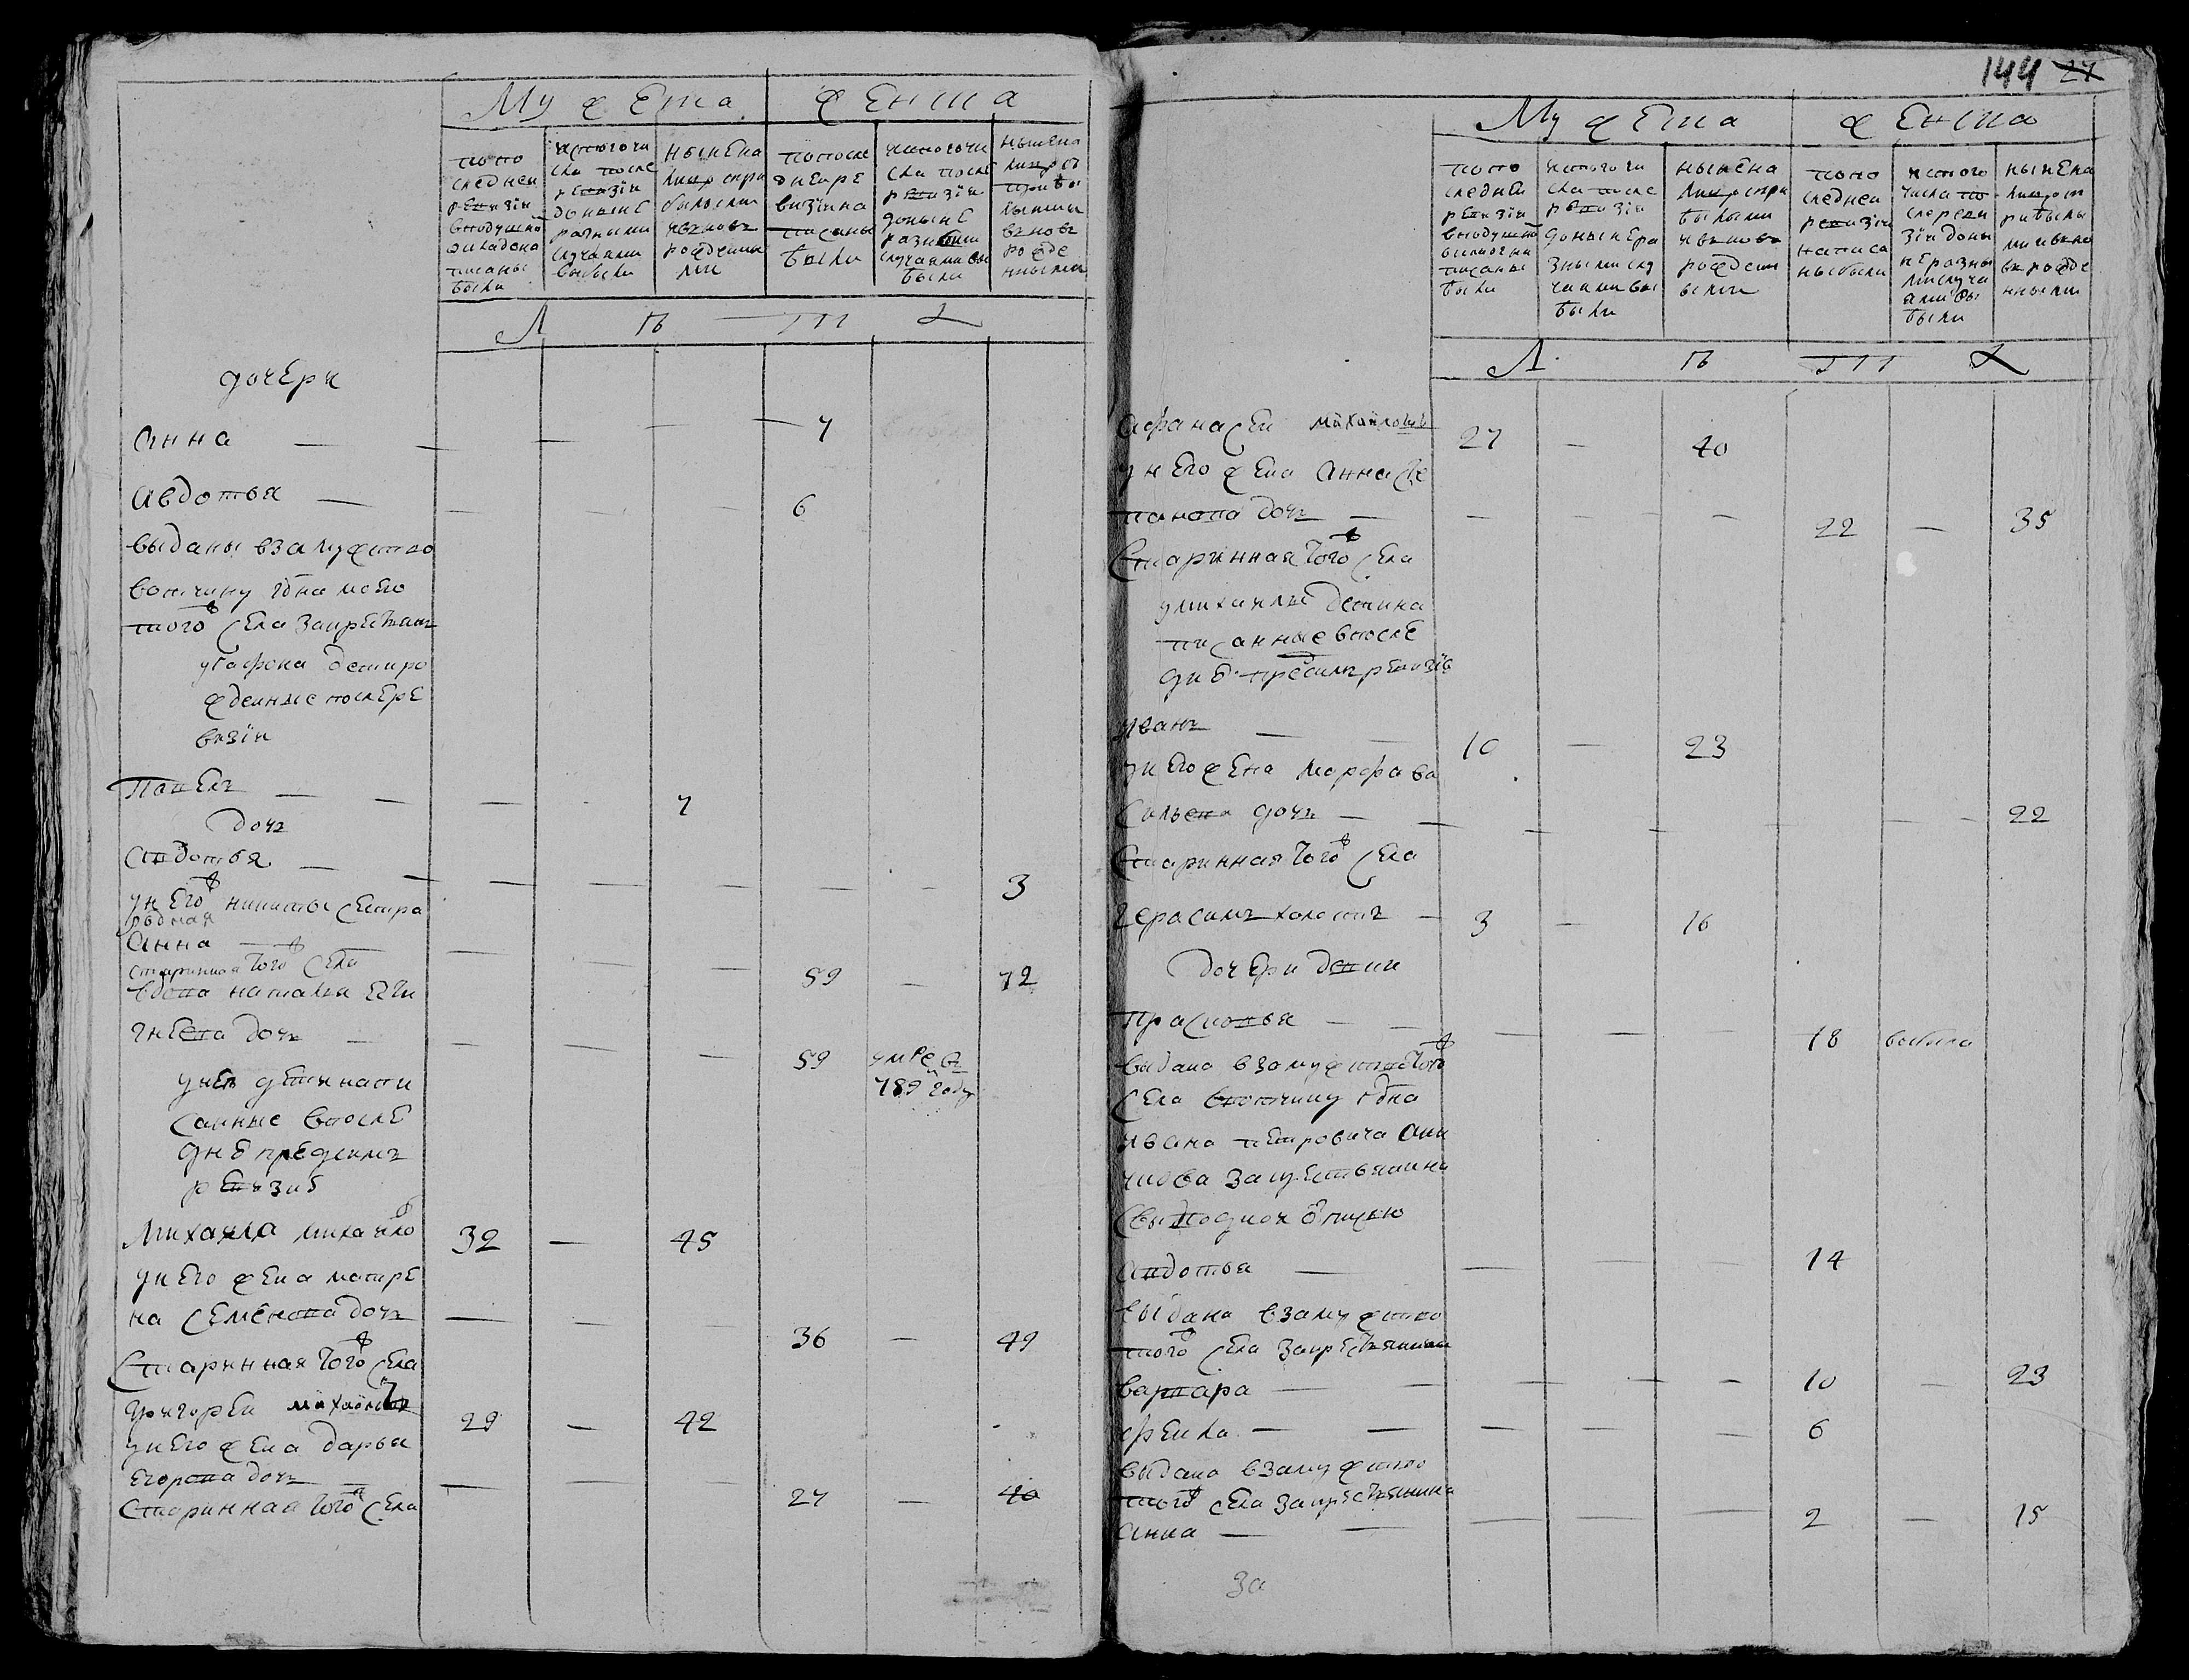 Мужеска
Женска
по по
следней
ревизии
в подушно
окладе на
писаны
были
ис того чи
сла после
ревизии
доныне
разными
случаями
выбыли
ныне на
лицо спри
былыми
и вновь
рожденны
ми
по после
дней ре
визии на
писаны
были
ис того чи
сла после
ревизии
доныне
разными
случаями вы
были
ныне на
лицо с
прибы
лыми
и вновь
рожде
нными
Л В Т А
дочери
Анна — — — — — 7
Авдотья — — — — 6
выданы взамужство
вотчину гдна моего
того ж села за крестьян
у Гафона дети ро
жденные после ре
визии
Павел — — — 7
дочь
Авдотья — — — — — — — 3
у него ж Никиты сестра
родная
Анна — — — — — 59 — 72
старинная того ж села
вдова Наталья Евги
гнеева дочь — — — — 59 умре в
789 м году
у нее дети напи
санные в после
дней пред сим
ревизи
Михайла Михайло в 32 — 45
у него жена Матре
на Семенова дочь — — — 36 — 49
Старинная того ж села
Григорей Михайлов 29 — 42
у него жена Дарья
Егорова дочь — — — — 27 — 40
Старинная того ж села
144 27
Мужеска
Женска
по по
следней
ревизии
в подушно
окладе на
писаны
были
ис того чи
сла после
ревизии
доныне ра
зными слу
чаями вы
были
ныне на
лицо с при
былыми
и вновь
рожденн
ыми
по по
следней
ревизии
написа
ны были
ис того
числа по
сле реви
зии доны
не разны
ми случа
ями вы
были
ныне на
лицо с п
рибылы
ми и вно
вь рожде
нными
Л В Т А
Афанасей Михайлов 27 — 40
у него жена Анна Сте
панова дочь — — — — 22 — 35
Старинная того ж села
у Михайлы дети на
писанные в после
дней пред сим ревизии
Иван — — 10 — 23
у него жена Марфа Ва
сильева дочь — — — — — — — 22
Старинная того ж села
Герасим холост — 3 — 16
дочери девки
Прасковья — — — — — 18 выбыла
выдана взамужство того ж
села вотчину гдна
Ивана Петровича Ани
чкова за крестьянина
с выводною отпискою
Авдотья — — — — 14
выдана взамужство
того ж села за крестьянина
Варвара — — — — — 10 — 23
Фекла — — — — — 6
выдана взамужство
того ж села за крестьянина
Анна — — — — — 2 — 15
за